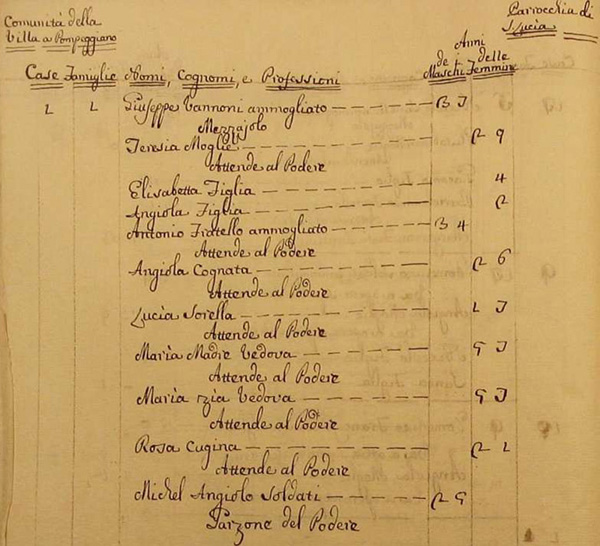 Comunità della
Villa a Pompeggiano
Parrocchia di
S. Lucia
Anni
de Maschi
delle Femmine
Case Famiglie Nomi, Cognomi, e Professioni
1 1 Giuseppe Vannoni ammogliato
Mezzajolo
Teresia Moglie 2 9
Attende al Podere
Elisabetta Figlia 4
Angiola Figlia 2
Antonio Fratello ammogliato 3 4
Attende al Podere
Angiola Cognata 2 6
Attende al Podere
Lucia Sorella
Attende al Podere
Maria Madre Vedova
Attende al Podere
Maria Zia Vedova
Attende al Podere
Rosa Cugina 2 1
Attende al Podere
Michel Angiolo Soldati
Garzone del Podere